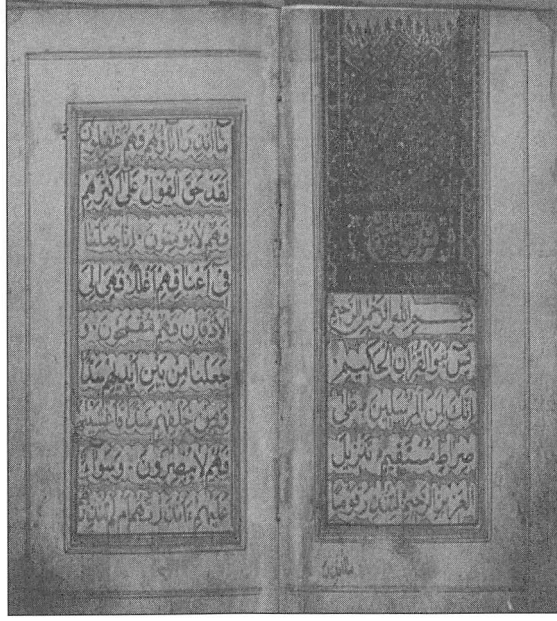 بِسْمِ اللهِ الرَّحْمٰنِ الرَّحِيمِ
يٰسٓ وَالْقُرْاٰنِ الْحَكِيمِ
اِنَّكَ لَمِنَ الْمُرْسَلِينَ عَلٰى
صِرَاطٍ مُسْتَقِيمٍ تَنْزِيلَ
الْعَزِيزِ الرَّحِيمِ لِتُنْذِرَ قَوْمًا
مَّا اُنْذِرَ اٰبَاؤُهُمْ فَهُمْ غٰفِلُونَ
لَقَدْ حَقَّ الْقَوْلُ عَلٰٓى اَكْثَرِهِمْ
فَهُمْ لَا يُؤْمِنُونَ اِنَّا جَعَلْنَا
فِٓى اَعْنَاقِهِمْ اَغْلَالًا فَهِىَ اِلَى
الْاَذْقَانِ فَهُمْ مُقْمَحُونَ وَ
جَعَلْنَا مِنْ بَيْنِ اَيْدِيهِمْ سَدًّا
وَمِنْ خَلْفِهِمْ سَدًّا
فَهُمْ لَا يُبْصِرُونَ وَسَوَٓاءٌ
عَلَيْهِمْ ءَاَنْذَرْتَهُمْ اَمْ لَمْ